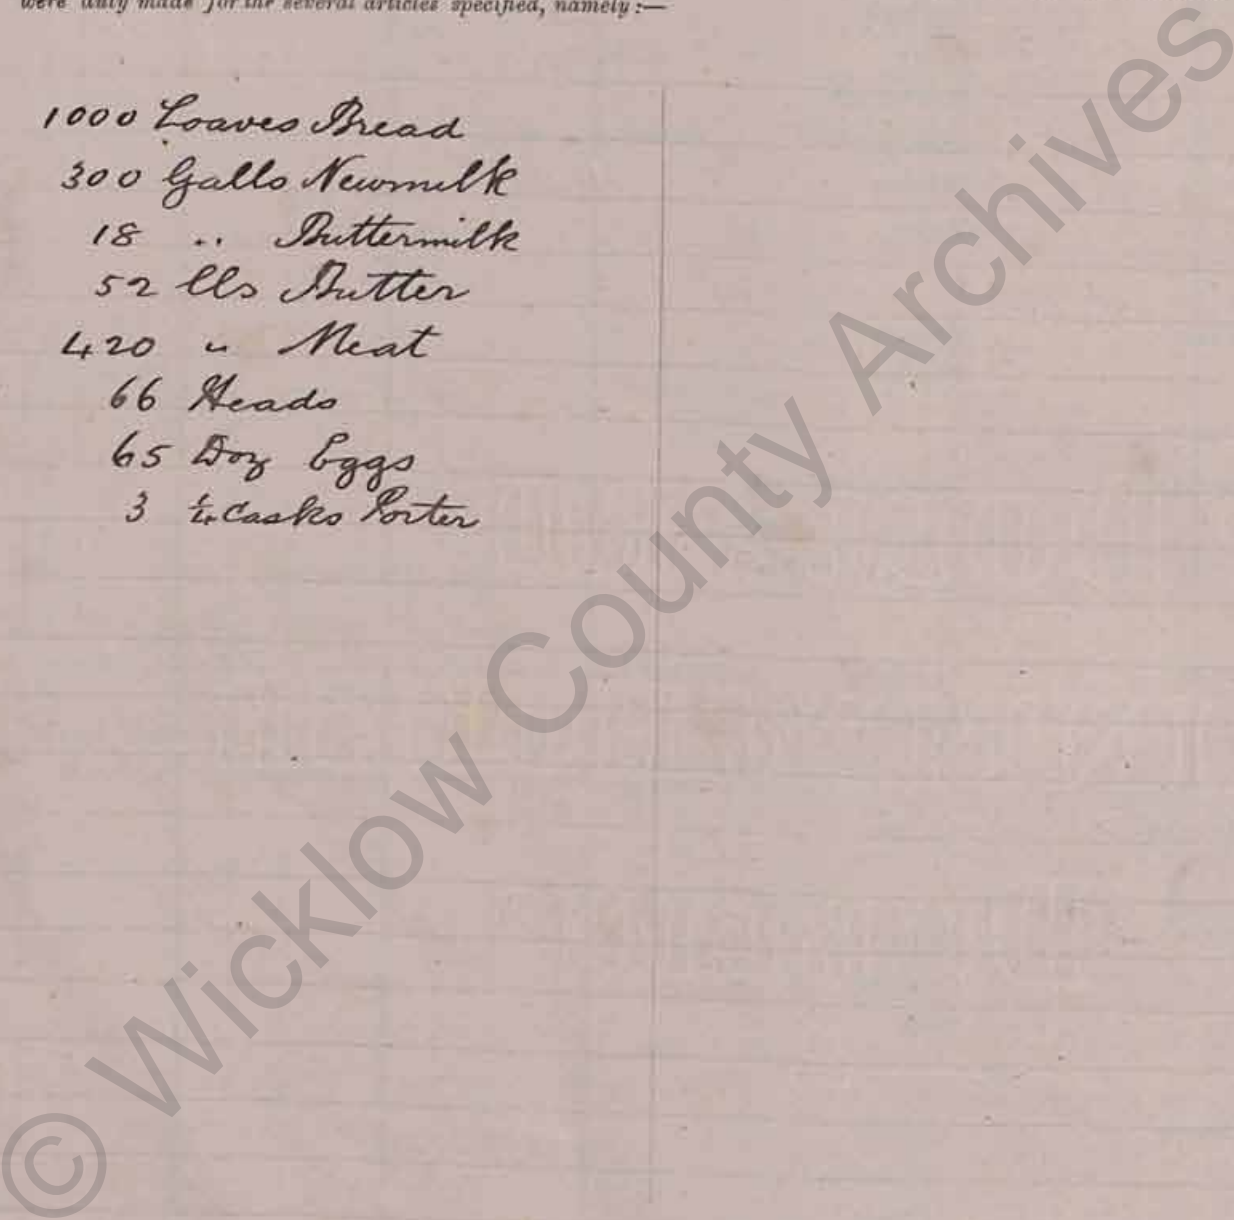 were duly made for the several articles specified, namely :—
1000 Loaves Bread
300 Galls Newmilk
18 .. Buttermilk
52 lbs Butter
420 " Meat
66 Heads
65 Doz Eggs
3 ¼ Casks Porter
© Wicklow County Archives